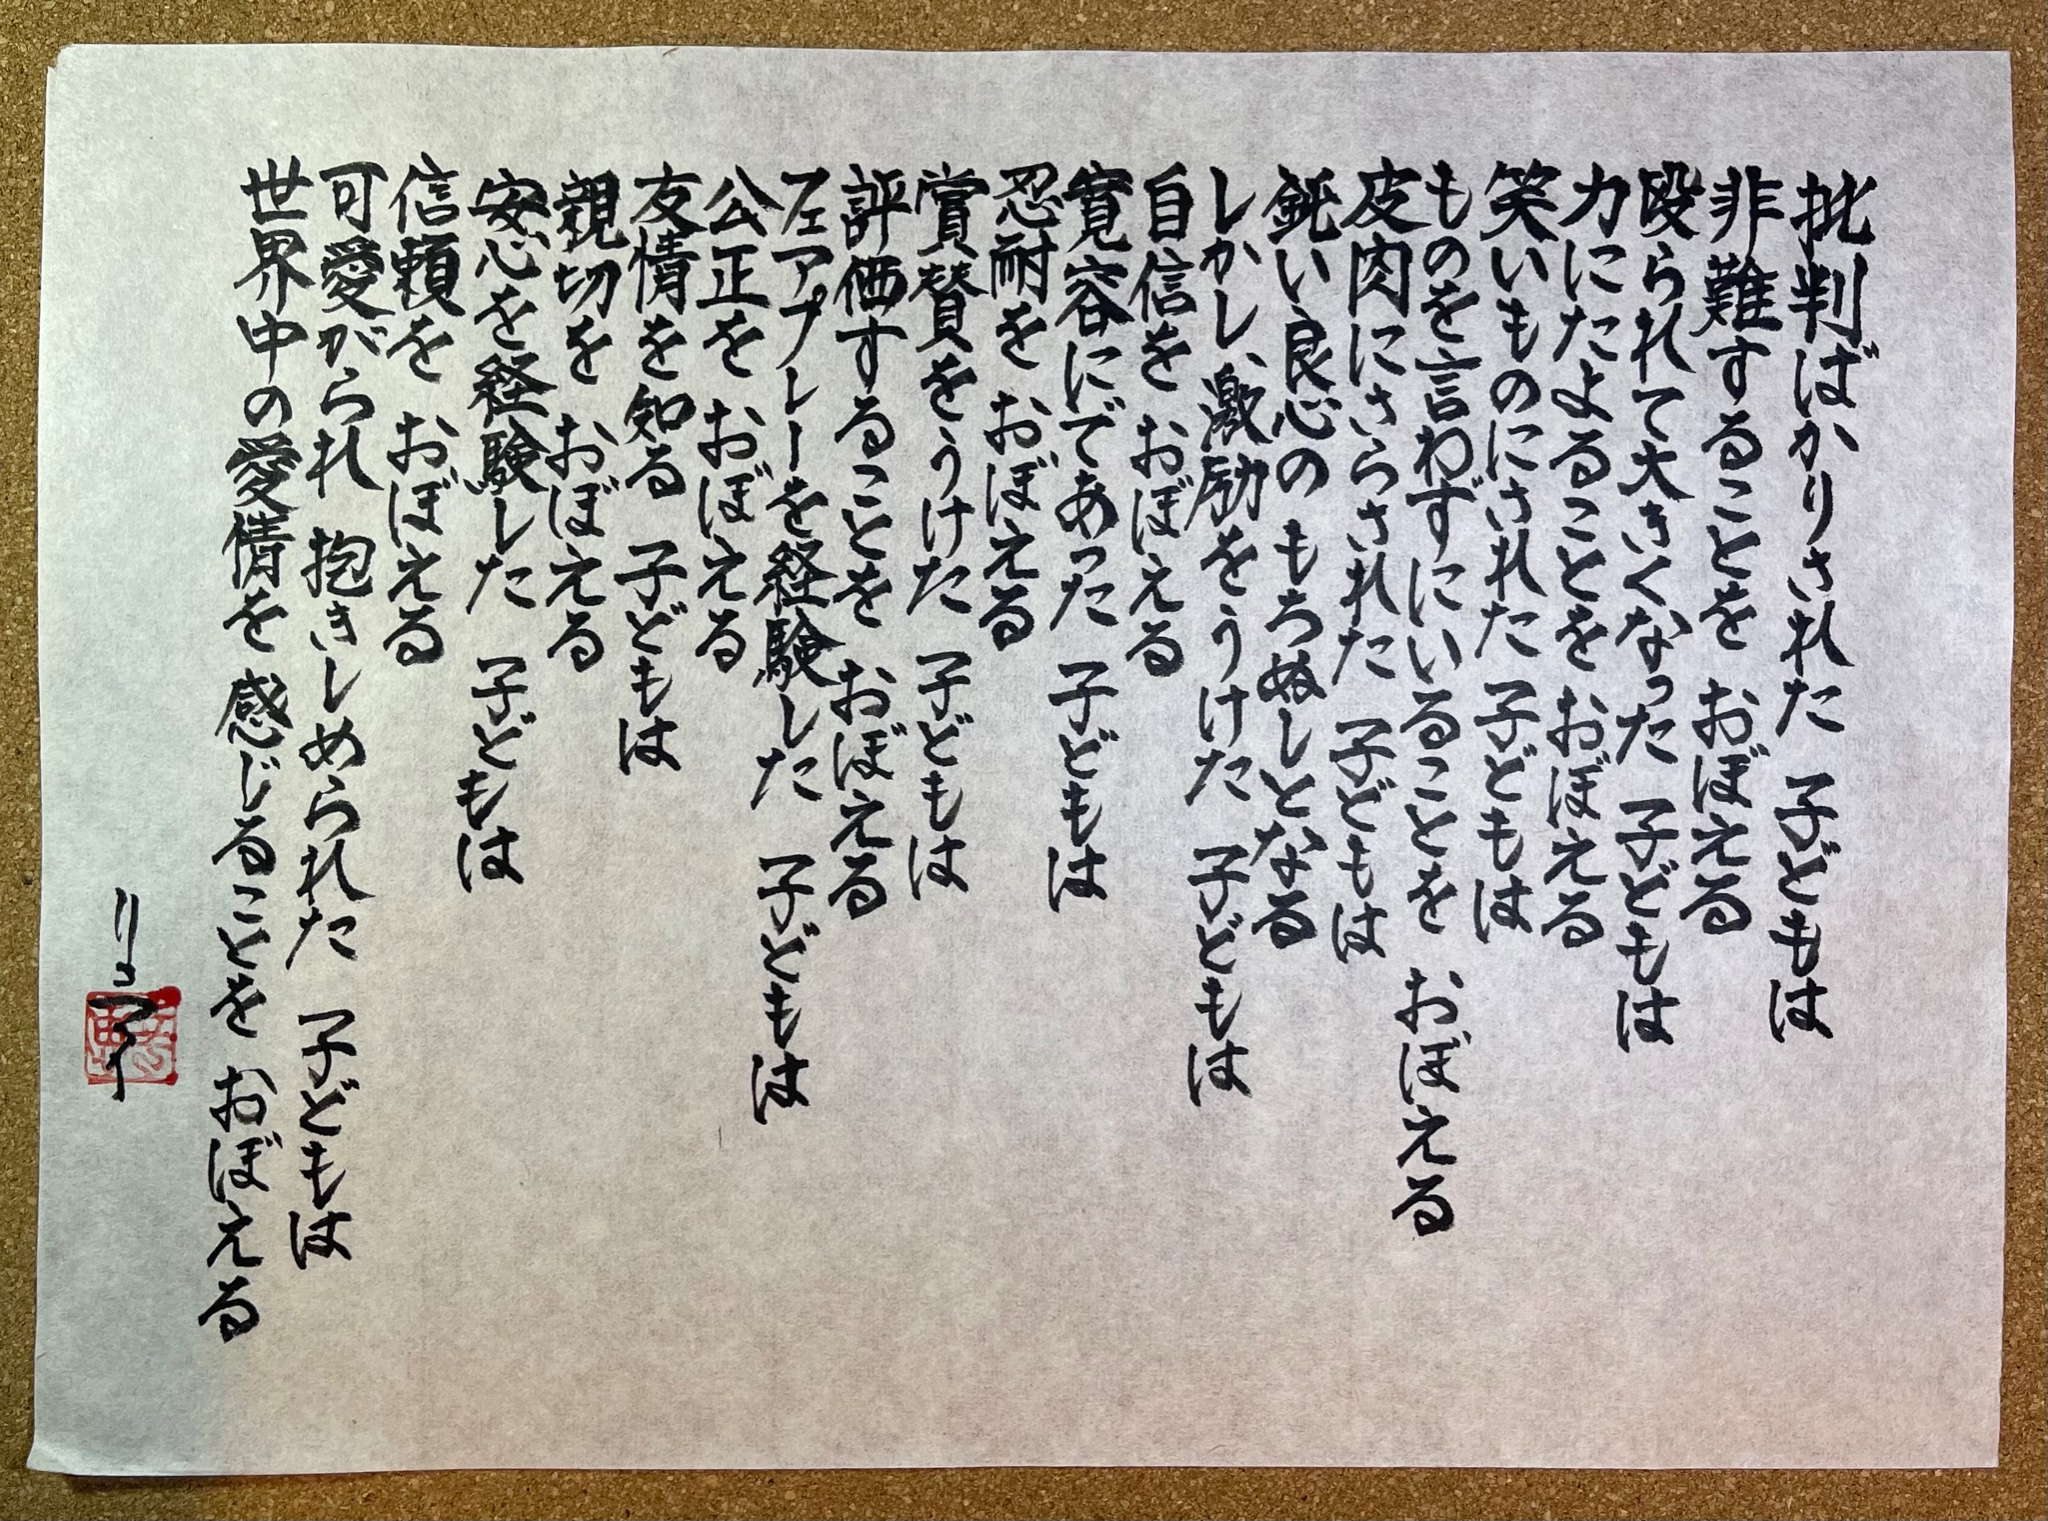 批判ばかりされた 子どもは
非難することを おぼえる
殴られて大きくなった 子どもは
力にたよることを おぼえる
笑いものにされた 子どもは
ものを言わずにいることを おぼえる
皮肉にさらされた 子どもは
鈍い良心の もちぬしとなる
しかし、激励をうけた 子どもは
自信を おぼえる
寛容にであった 子どもは
忍耐を おぼえる
賞賛をうけた 子どもは
評価することを おぼえる
フェアプレーを経験した 子どもは
公正を おぼえる
友情を知る 子どもは
親切を おぼえる
安心を経験した 子どもは
信頼を おぼえる
可愛がられ 抱きしめられた 子どもは
世界中の愛情を 感じることを おぼえる